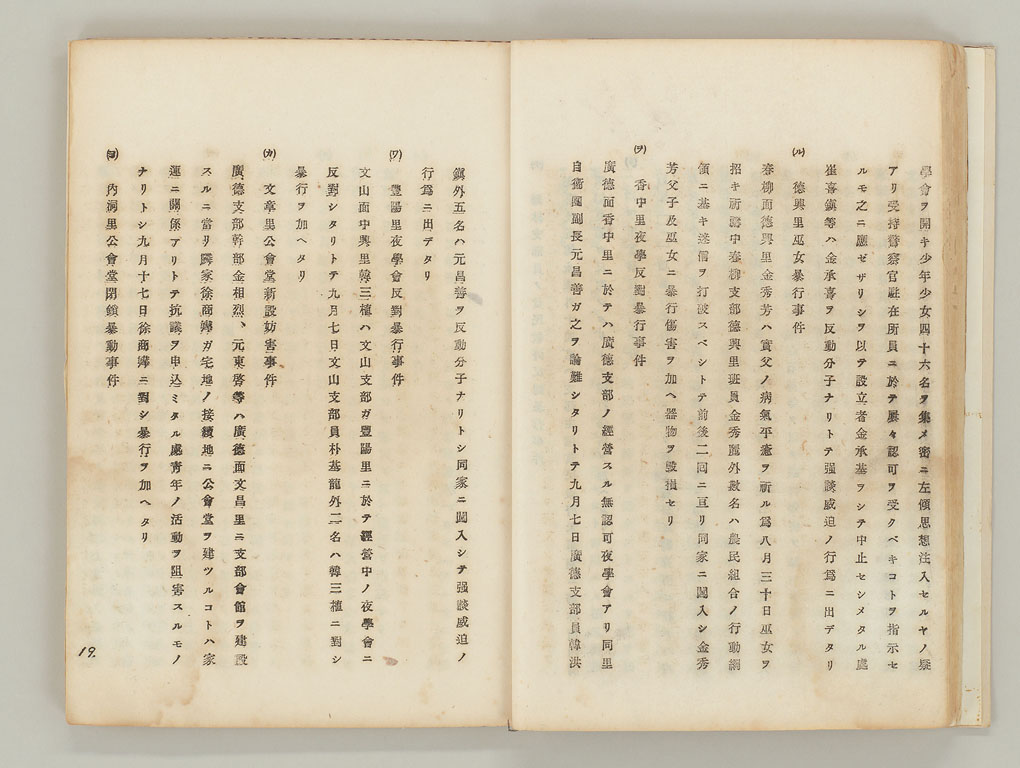 學會ヲ開キ少年少女四十六名ヲ集メ密ニ左傾思想注入セルヤノ疑
アリ受持警察官駐在所員ニ於テ屢々認可ヲ受クベキコトヲ指示セ
ルモ之ニ應ゼザリシヲ以テ設立者金承基ヲシテ中止セシメタル處
崔喜鎭等ハ金承喜ヲ反動分子ナリトテ强談威迫ノ行爲ニ出デタリ
(ル) 德興里巫女暴行事件
春柳面德興里金秀芳ハ實父ノ病氣平癒ヲ祈ル爲八月三十日巫女ヲ
招キ祈禱中春柳支部德興里班員金秀麗外數名ハ農民組合ノ行動綱
領ニ基キ迷信ヲ打破スベシトテ前後二回ニ亘リ同家ニ闖入シ金秀
芳父子及巫女ニ暴行傷害ヲ加ヘ器物ヲ毀損セリ
(ヲ) 香中里夜學反對暴行事件
廣德面香中里ニ於テハ廣德支部ノ經營スル無認可夜學會アリ同里
自衞團副長元昌善ガ之ヲ論難シタリトテ九月七日廣德支部員韓洪
鎭外五名ハ元昌善ヲ反動分子ナリトシ同家ニ闖入シテ强談威迫ノ
行爲ニ出デタリ
(ワ) 豐陽里夜學會反對暴行事件
文山面中興里韓三植ハ文山支部ガ豐陽里ニ於テ經營中ノ夜學會ニ
反對シタリトテ九月七日文山支部員朴基龍外二名ハ韓三植ニ對シ
暴行ヲ加ヘタリ
(カ) 文章里公會堂新設妨害事件
廣德支部幹部金相烈、元東啓等ハ廣德面文昌里ニ支部會館ヲ建設
スルニ當リ隣家徐商燁ガ宅地ノ接續地ニ公會堂ヲ建ツルコトハ家
運ニ關係アリトテ抗議ヲ申込ミタル處靑年ノ活動ヲ阻害スルモノ
ナリトシ九月十七日徐商燁ニ對シ暴行ヲ加ヘタリ
(ヨ) 內洞里公會堂閉鎖暴動事件
19.